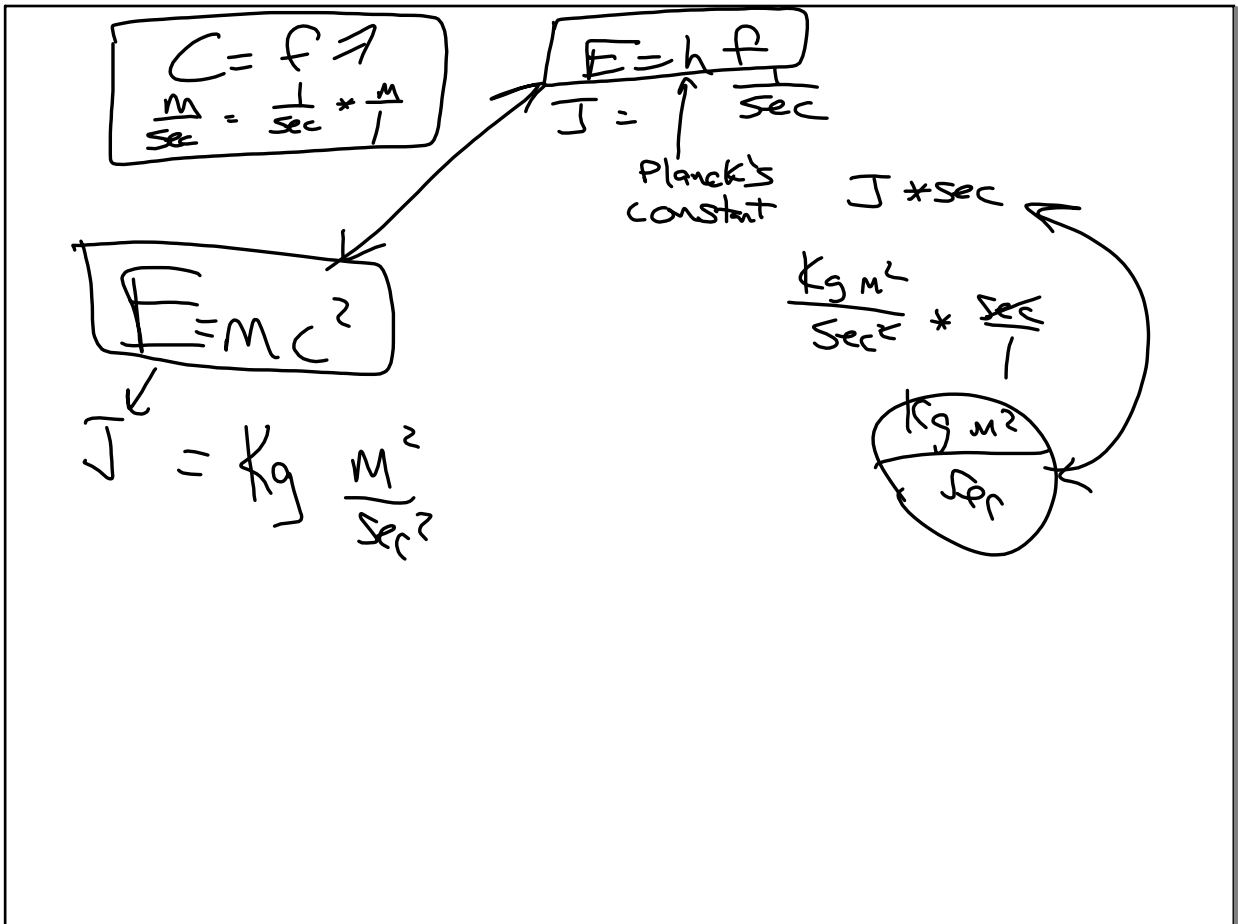 C = f λ
m/sec = 1/sec * m/1
E = h f
J = 1/sec
Planck's
constant
J * sec
E = mc²
Kg m²/sec² * sec/1
J = Kg m²/sec²
Kg m²/sec